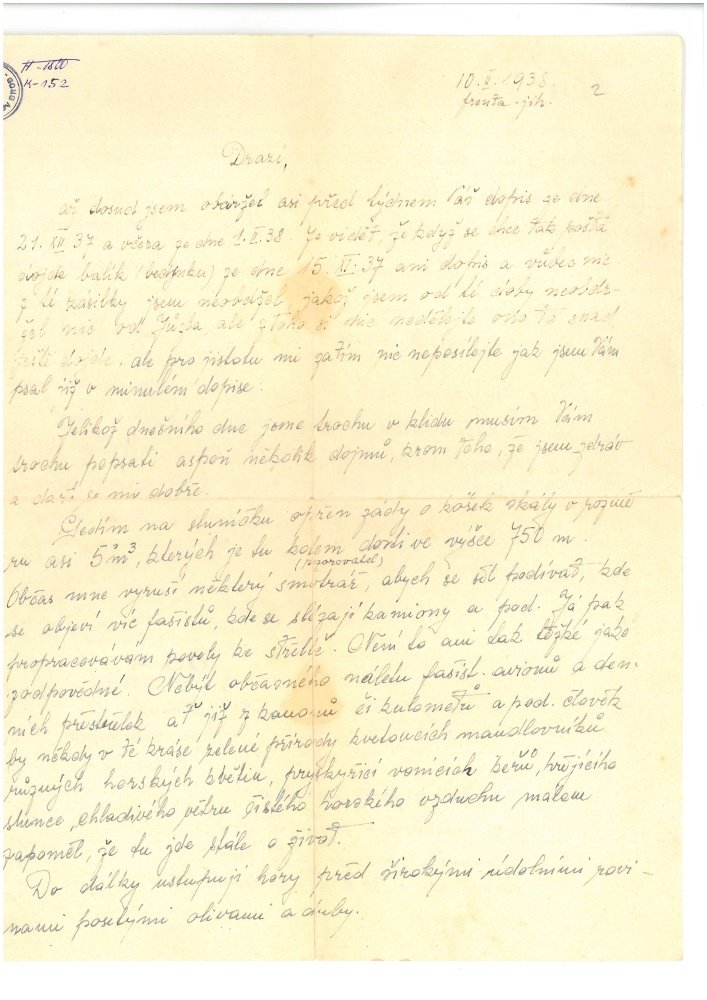 H-1800
K-152
10.II.1938.
fronta-jih.
2
Drazí,
až dosud jsem obdržel asi před týdnem Váš dopis ze dne
21.XII.37 a včera ze dne 1.II.38. Je vidět, že když se chce tak pošta
dojde balík (bedýnku) ze dne 15. 37 ani dopis a vůbec nic
z té zásilky jsem neobdržel, jakož jsem od té doby neobdr-
žel nic od ale z toho si nic nedělejte ono to snad
ještě dojde, ale pro jistotu mi zatím nic neposílejte jak jsem Vám
psal již v minulém dopise.
Jelikož dnešního dne jsme trochu v klidu musím Vám
trochu popsati aspoň několik dojmů, krom toho, že jsem zdráv
a daří se mi dobře.
Sedím na sluníčku opřen zády o kousek skály v rozmě-
ru asi 5 m³, kterých je tu kolem dosti ve výšce 750 m.
(pozorovatel)
Občas mne vyruší některý smotráž, abych se šel podívat, kde
se objeví víc fašistů, kde se slézají kamiony a pod. Já pak
propracovávám povely ke střelbě. Není to ani tak těžké jako
zodpovědné. Nebýt občasného náletu fašist. avionů a den-
ních přestřelek ať již z kanonů či kulometů a pod. člověk
by někdy v té kráse zelené přírody kvetoucích mandlovníků
různých horských květin, pryskyřicí vonících keřů, hřejícího
slunce, chladivého větru čistého horského vzduchu málem
zapoměl, že tu jde stále o život.
Do dálky ustupují hory před širokými údolními rovi-
nami posetými olivami a duby.